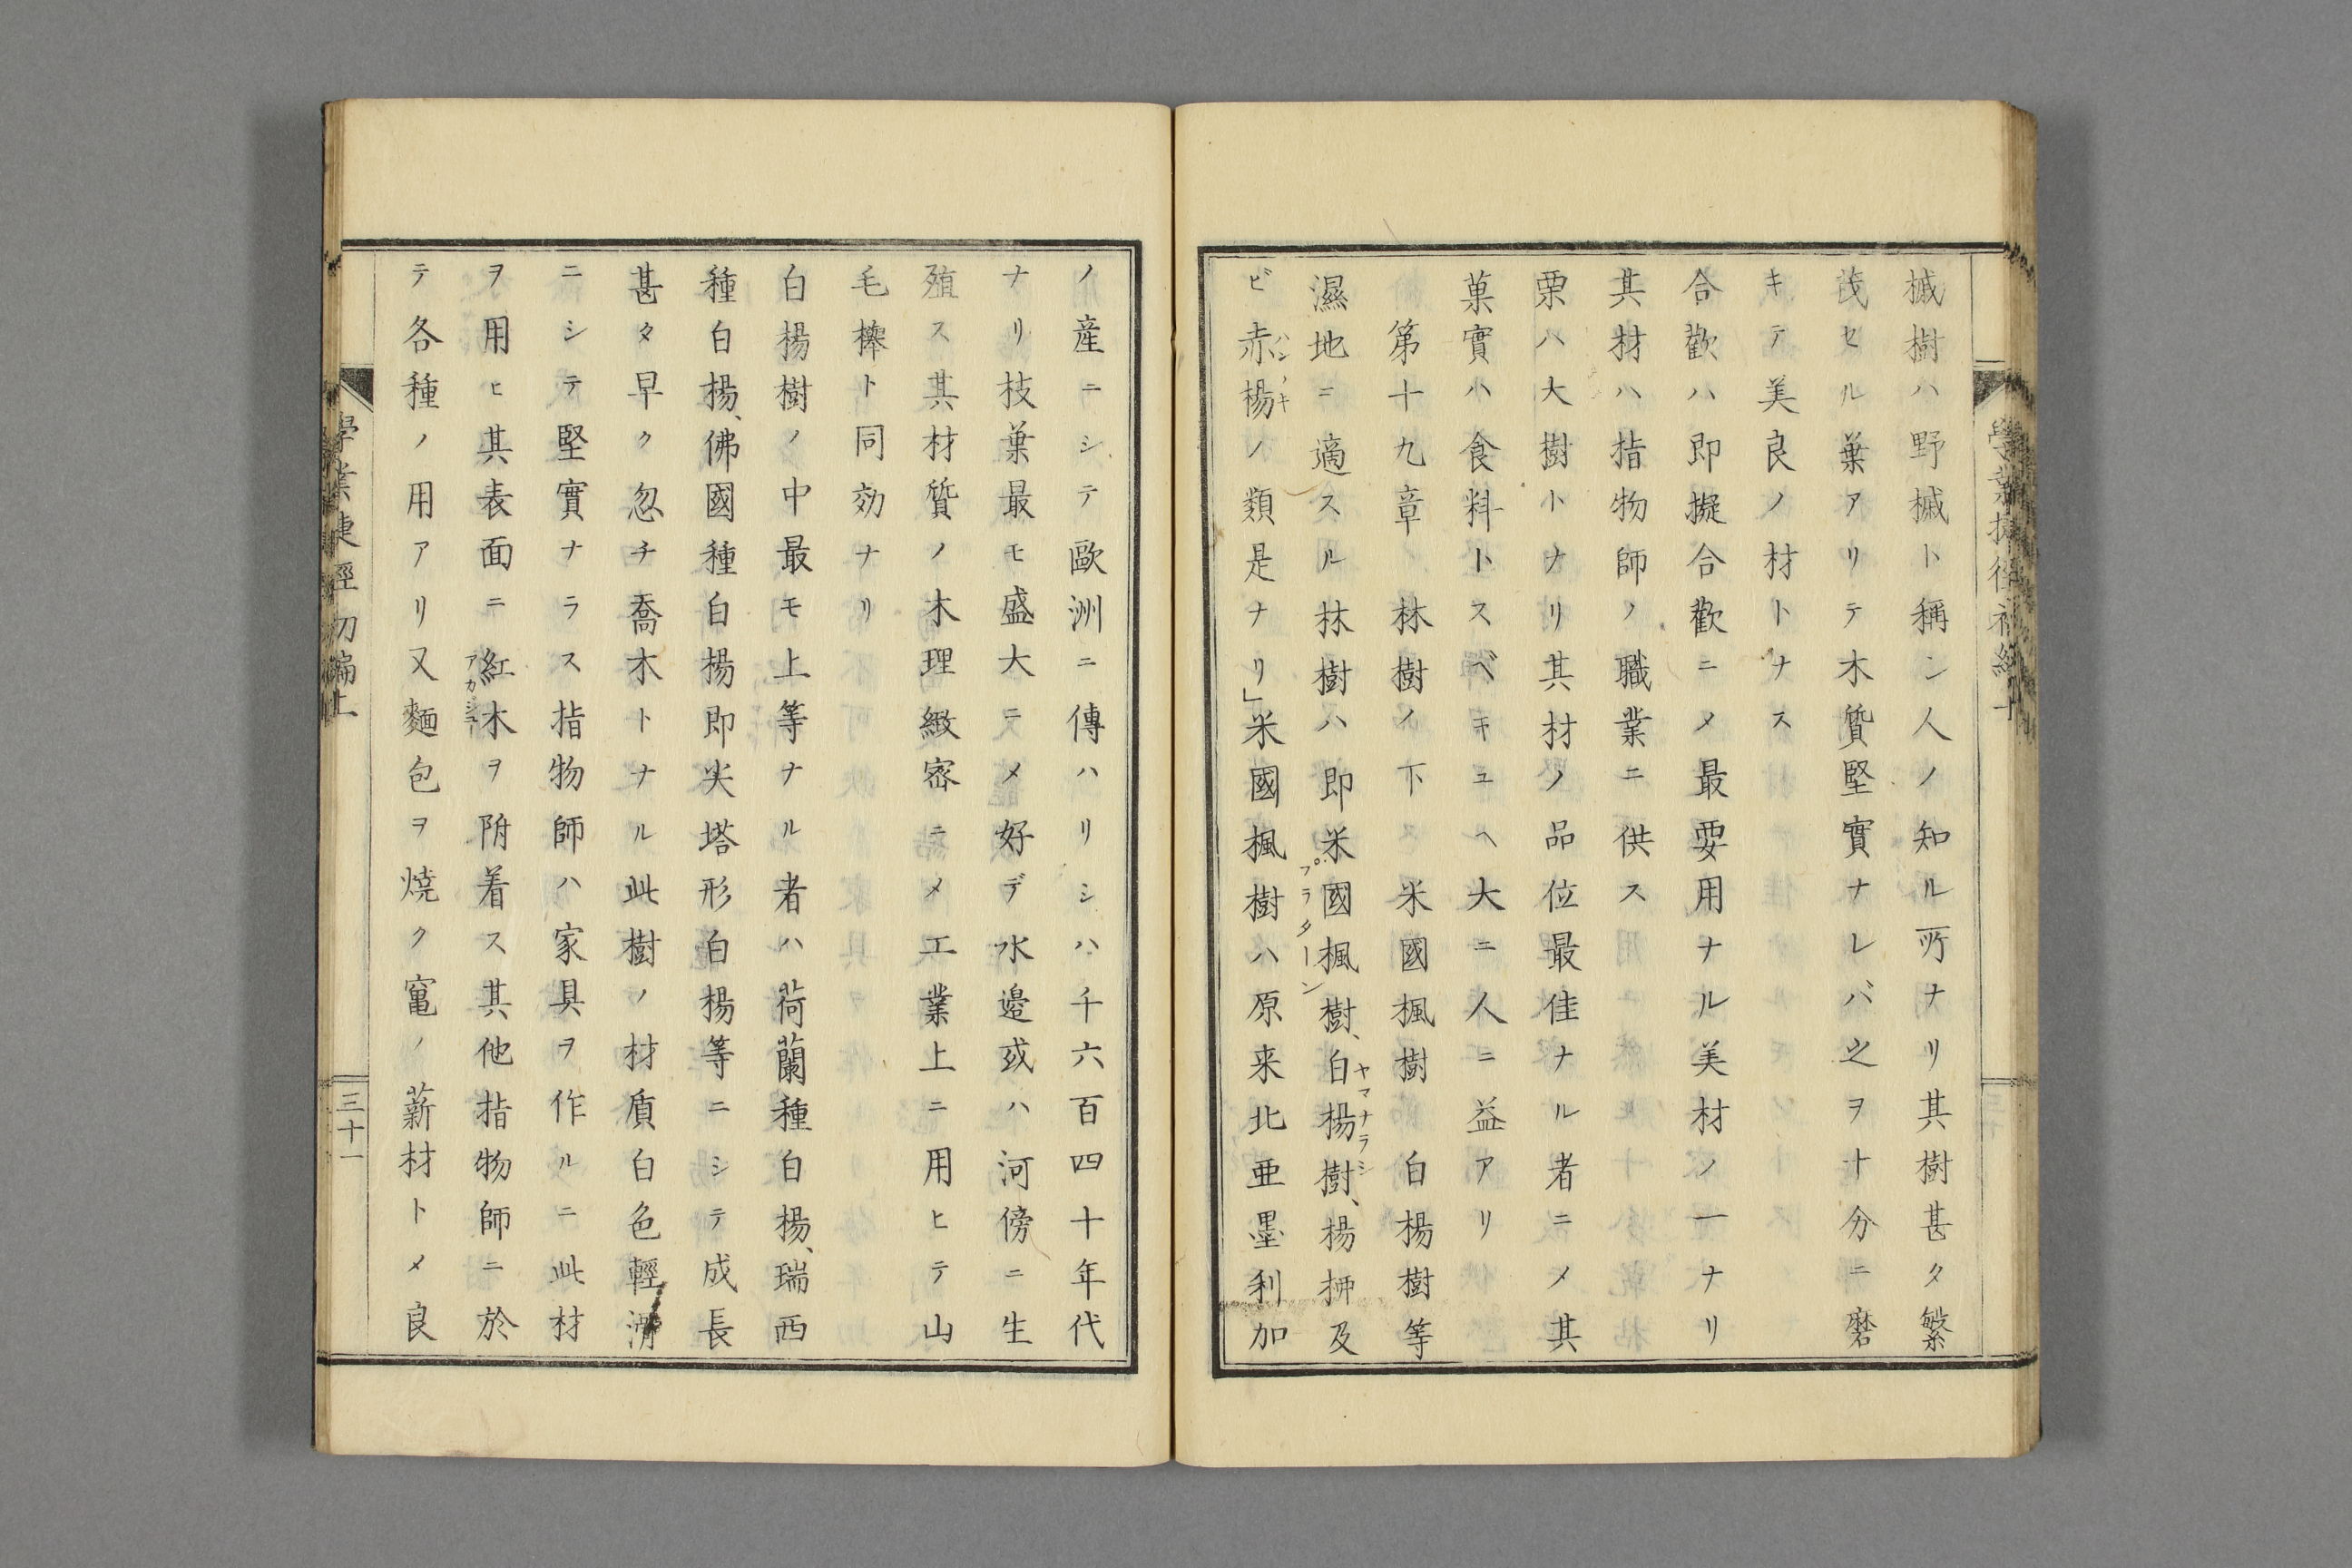 槭樹ハ野槭ト稱シ人ノ知ル所ナリ其樹甚タ繁
茂セル葉アリテ木質堅實ナレバ之ヲ十分ニ磨
キテ美良ノ材トナス
合歡ハ即擬合歡ニメ最要用ナル美材ノ一ナリ
其材ハ指物師ノ職業ニ供ス
栗ハ大樹トナリ其材ノ品位最佳ナル者ニメ其
菓實ハ食料トスベキユヘ大ニ人ニ益アリ
第十九章ノ林樹ノ下 米國楓樹 白楊樹等
濕地ニ適スル林樹ハ即米國楓樹、白楊樹、楊柳及
プラターン
ヤマナラシ
ビ赤楊ノ類是ナリ」米國楓樹ハ原来北亜墨利加
ハンノキ
ノ産ニシテ歐洲ニ傳ハリシハ千六百四十年代
ナリ枝葉最モ盛大ニメ好デ水邉或ハ河傍ニ生
殖ス其材質ノ木理緻密ニメ工業上ニ用ヒテ山
毛櫸ト同効ナリ
白楊樹ノ中最モ上等ナル者ハ荷蘭種白楊、瑞西
種白楊、佛國種白楊即尖塔形白楊等ニシテ成長
甚タ早ク忽チ喬木トナル此樹ノ材質白色輕滑
ニシテ堅實ナラス指物師ハ家具ヲ作ルニ此材
ヲ用ヒ其表面ニ紅木ヲ附着ス其他指物師ニ於
テ各種ノ用アリ又麵包ヲ燒ク竃ノ薪材トメ良
學業捷徑初編上
三十一